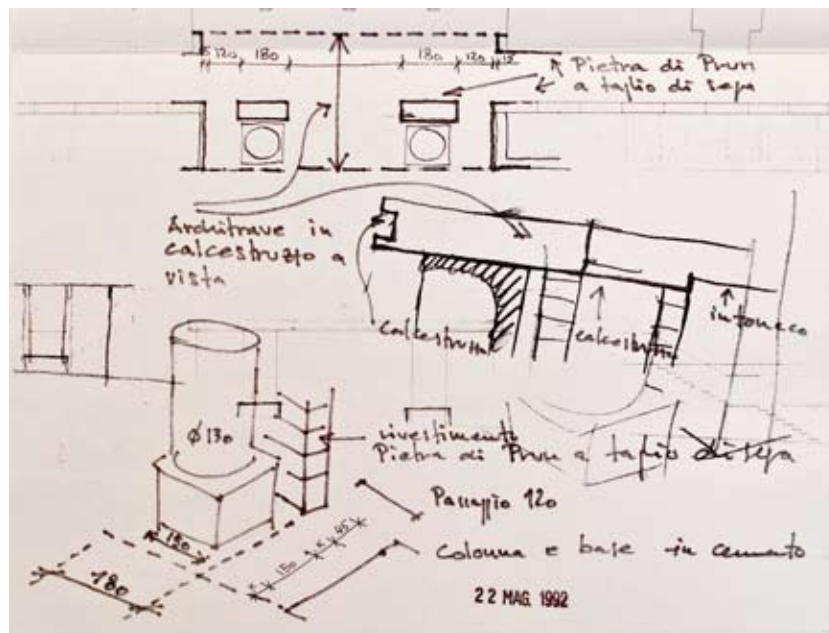 5 120 180 180 120 15
Pietra di Prun
a taglio di sega
Architrave in
calcestruzzo a
vista
calcestruzzo
calcestruzzo
intonaco
Ø 130
rivestimento
Pietra di Prun a taglio di sega
Passaggio 120
Colonna e base in cemento
180
22 MAG. 1992